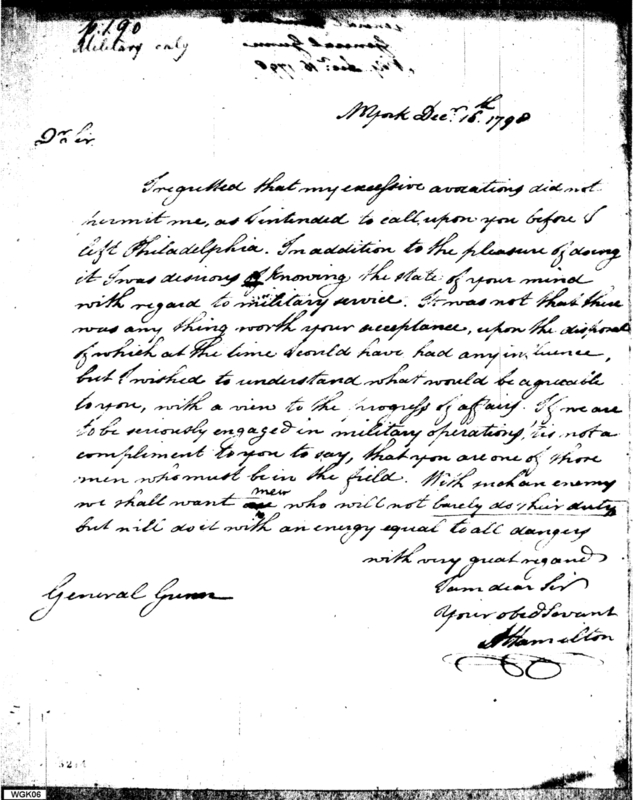 p. 190
Military only
General Gunn
NYork Decr. 16th. 1798
Dr Sir
I regretted that my excessive avocations did not
permit me, as I intended to call upon you before I
left Philadelphia. In addition to the pleasure of doing
it I was desirous of knowing the state of your mind
with regard to military service. It was not that there
was any thing worth your acceptance, upon the disposal
of which at the time I could have had any influence,
but I wished to understand what would be agreeable
to you, with a view to the progress of affairs. If we are
to be seriously engaged in military operations, 'tis not a
compliment to you to say, that you are one of those
men who must be in the field. With such an enemy
we shall want men who will not barely do their duty
but will do it with an energy equal to all dangers
with very great regard
I am dear Sir
Your obed Servant
AHamilton
General Gunn
WGK06